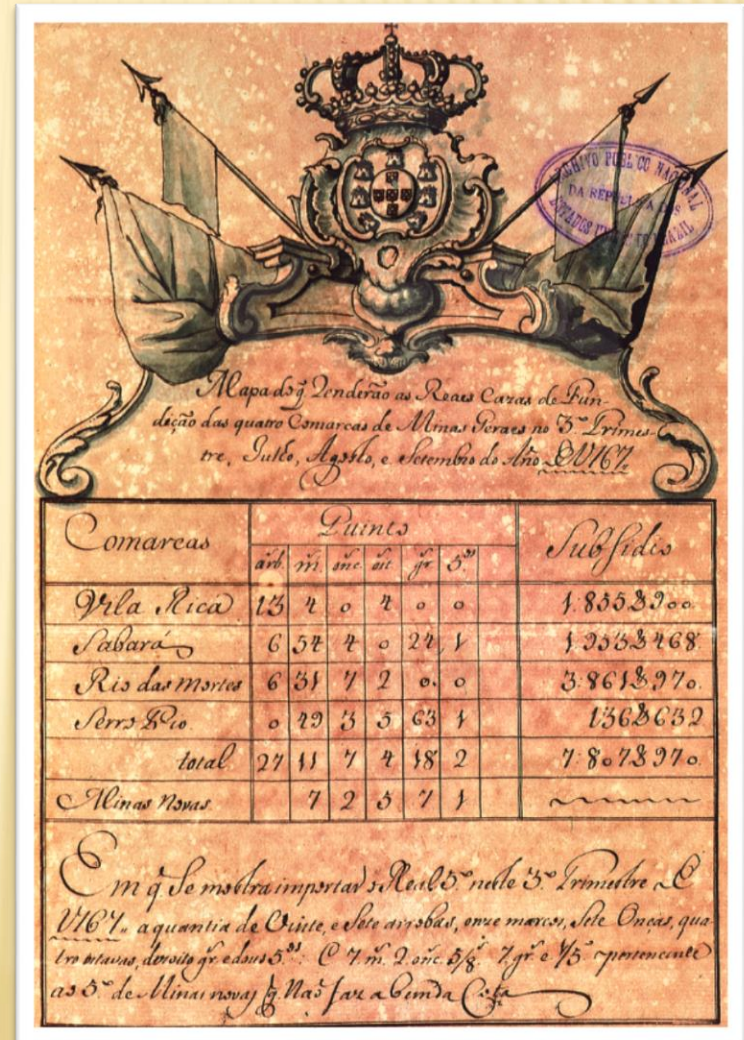 ARCHIVO PUBLICO NACIONAL
DA REPUBLICA DOS
ESTADOS UNIDOS DO BRAZIL
Mapa do q̃ Renderão as Reaes Cazas de Fun-
dição das quatro Comarcas de Minas Geraes no 3º Trimes-
tre, Julho, Agosto, e Setembro do Año
Comarcas Quinto Subsidio
arb. m̃ onc. oit gr 5.os
Vila Rica 13 4 0 4 0 0 1.855$900
Sabará 6 54 4 0 24 1 1.953$468
Rio das Mortes 6 31 7 2 0 0 3.861$970
Serro Frio 0 49 3 5 63 1 136$632
total 27 11 7 4 18 2 7.807$970
Minas Novas 7 2 5 7 1
Em q̃ Se mostra importar o Real 5.º neste 3.º Trimestre
a quantia de Vinte, e Sete arrobas, onze marcos, Sete Oncas, qua-
tro oitavas, dezoito gr. e dous 5.os: E 7 m. 2 onc. 5/8. 7 gr. e 1/5 pertencente
ao 5.º de Minas novas q̃ Nas faz a bunda Cota